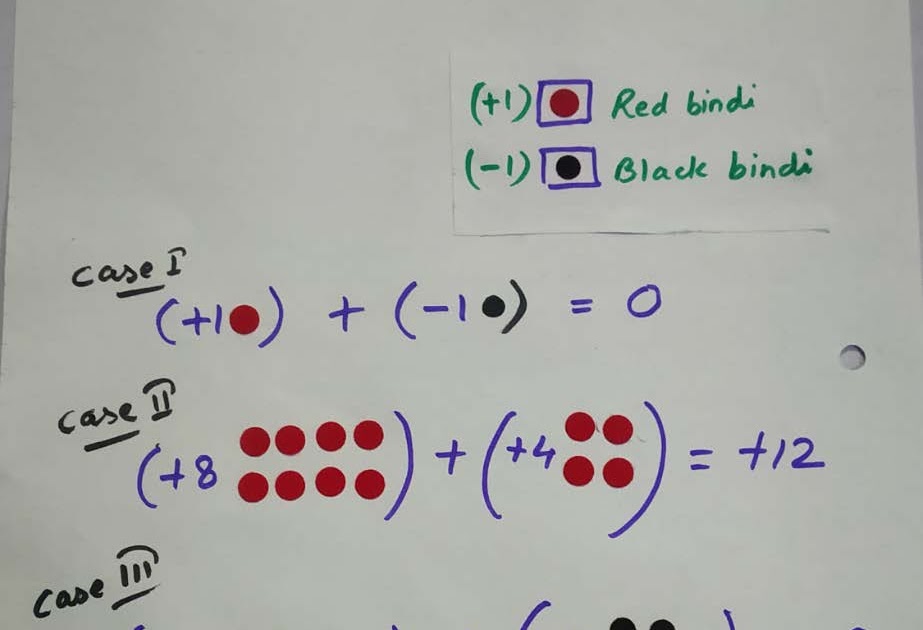 (+1) Red bindi
(-1) Black bindi
Case I
(+1) + (-1) = 0
Case II
(+8) + (+4) = +12
Case III